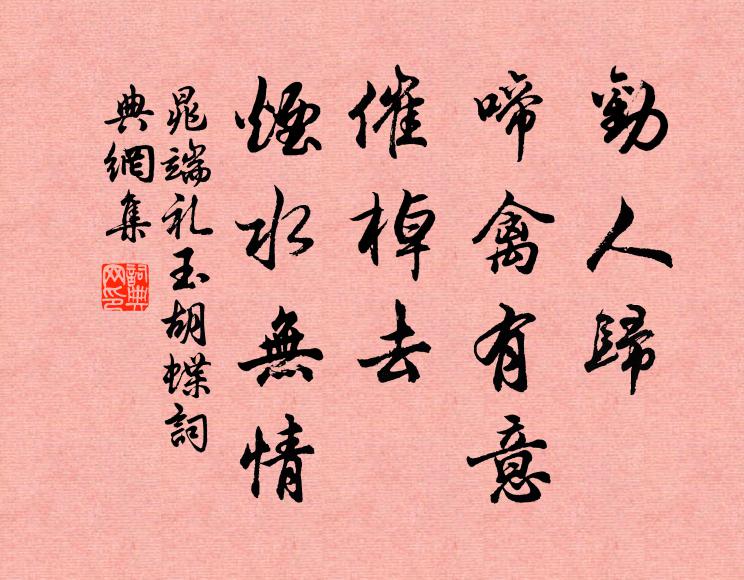 勸人歸
啼禽有意
催棹去
煙水無情
晁端礼玉胡蝶詞
典網集
詞典网印